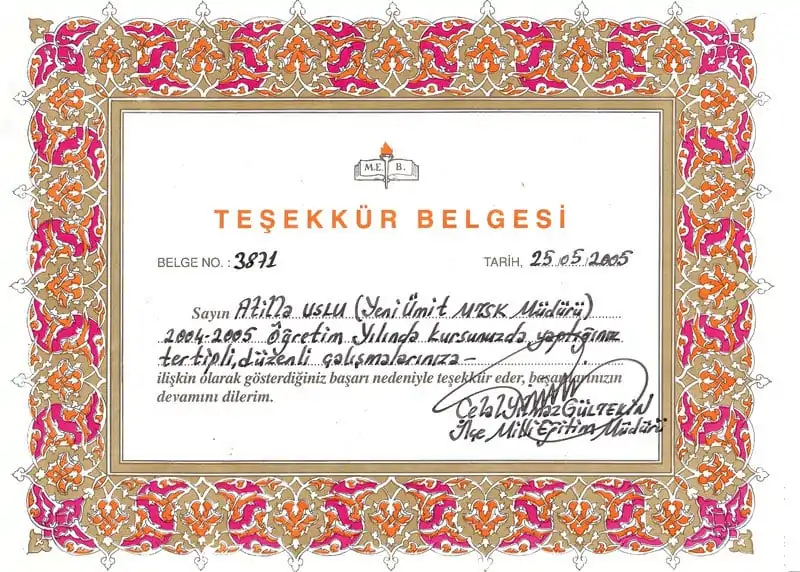 M.E. B.
TEŞEKKÜR BELGESİ
BELGE NO. : 3871
TARİH, 25/05/2005
Sayın Atilla USLU (Yeni Ümit MTSK Müdürü)
2004-2005 Öğretim Yılında kursunuzda yaptığınız
tertipli, düzenli çalışmalarınıza —
ilişkin olarak gösterdiğiniz başarı nedeniyle teşekkür eder, başarılarınızın
devamını dilerim.
Celal Yılmaz GÜLTEKİN
İlçe Milli Eğitim Müdürü